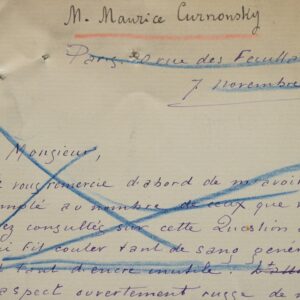 M. Maurice Curnonsky
Paris rue des Feuilla
7 novembre
Monsieur,
vous remercie d'abord de m'avoir
au nombre de ceux que v
ez consultés sur cette Question
i fit couler tant de sang géné
tant d'encre inutile :
aspect ouvertement de